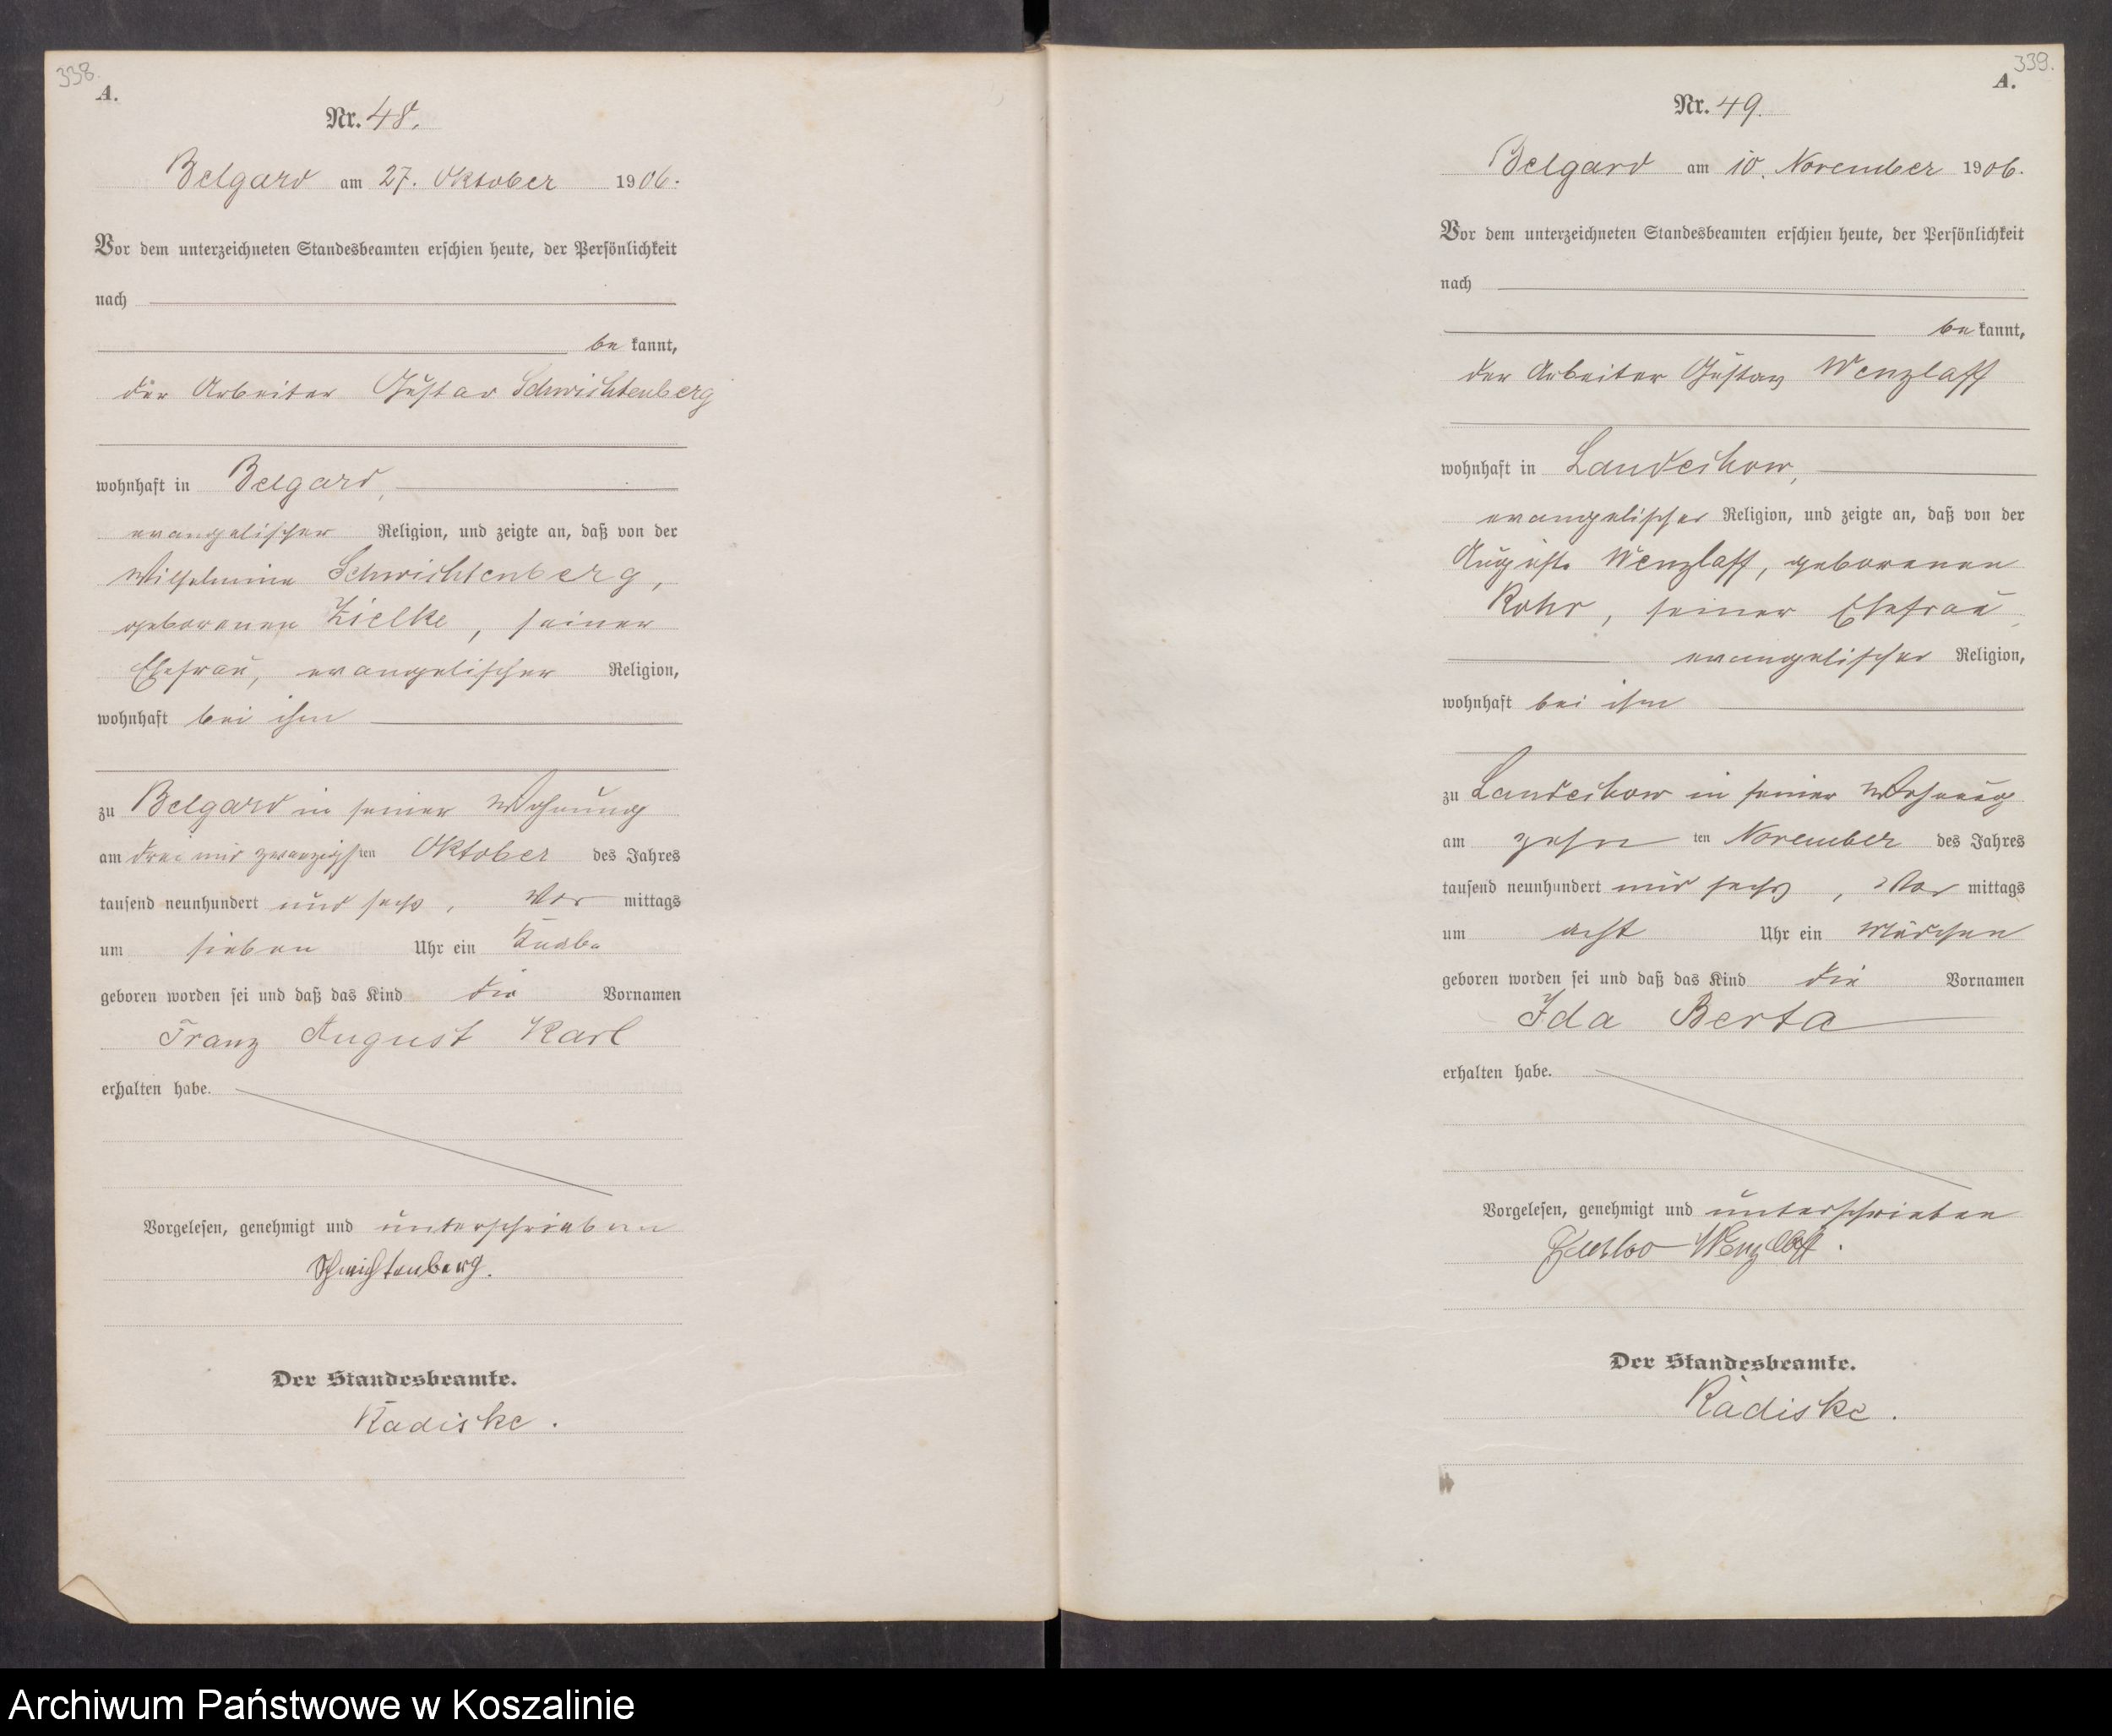 338.
A.
Nr. 48.
Belgard am 27. Oktober 1906.
Vor dem unterzeichneten Standesbeamten erschien heute, der Persönlichkeit
nach
be kannt,
der Arbeiter Gustav Schwichtenberg
wohnhaft in Belgard,
evangelischer Religion, und zeigte an, daß von der
Wilhelmine Schwichtenberg,
geborenen Zielke, seiner
Ehefrau, evangelischer Religion,
wohnhaft bei ihm
zu Belgard in seiner Wohnung
am drei und zwanzigsten Oktober des Jahres
tausend neunhundert und sechs, Vor mittags
um sieben Uhr ein Knabe
geboren worden sei und daß das Kind die Vornamen
Franz August Karl
erhalten habe.
Vorgelesen, genehmigt und unterschrieben
Schwichtenberg.
Der Standesbeamte.
Radiske.
339.
A.
Nr. 49.
Belgard am 10. November 1906.
Vor dem unterzeichneten Standesbeamten erschien heute, der Persönlichkeit
nach
be kannt,
der Arbeiter Gustav Wenzlaff
wohnhaft in Landechow,
evangelischer Religion, und zeigte an, daß von der
Auguste Wenzlaff, geborenen
Rohr, seiner Ehefrau,
evangelischer Religion,
wohnhaft bei ihm
zu Landechow in seiner Wohnung
am zehn ten November des Jahres
tausend neunhundert und sechs, Vor mittags
um acht Uhr ein Mädchen
geboren worden sei und daß das Kind die Vornamen
Ida Berta
erhalten habe.
Vorgelesen, genehmigt und unterschrieben
Wenzlaff.
Der Standesbeamte.
Radiske.
Archiwum Państwowe w Koszalinie